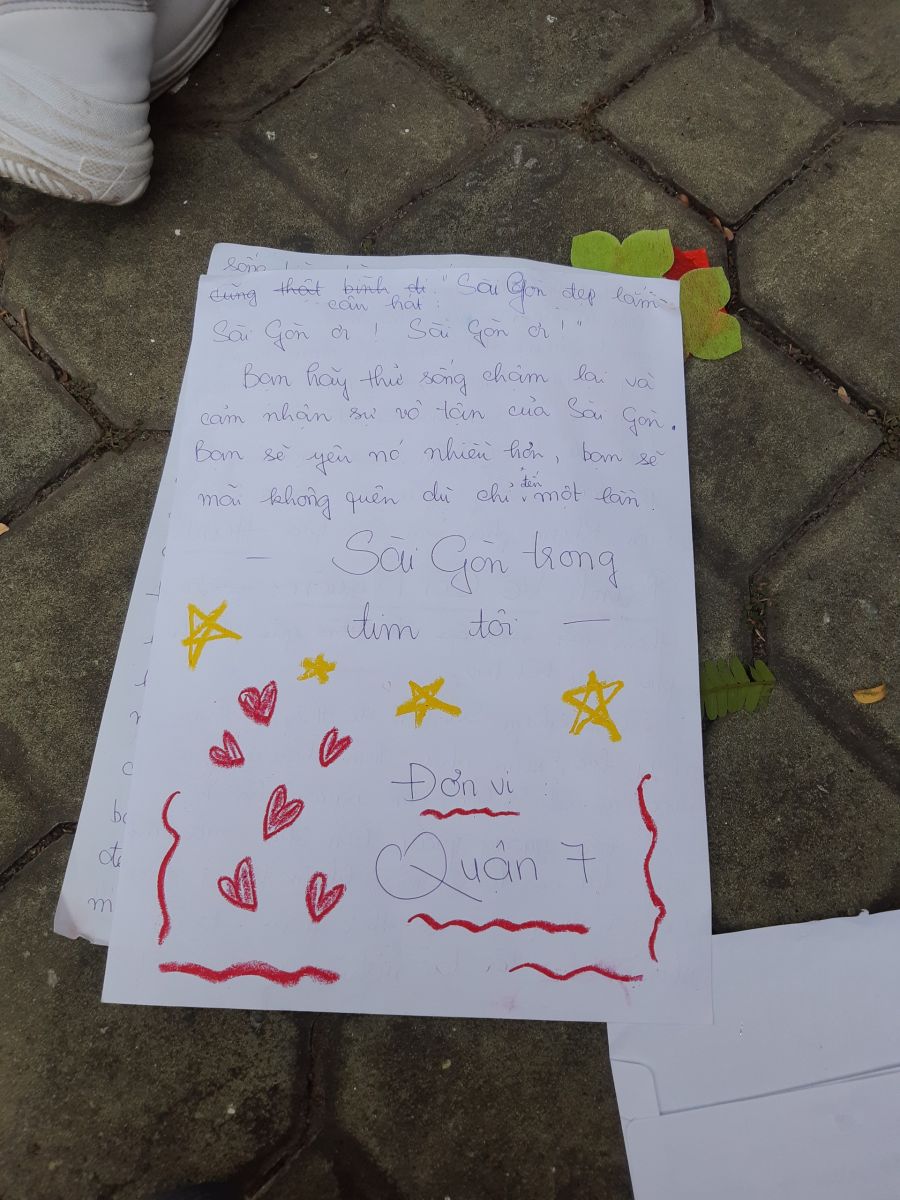 sống
cũng thật bình dị "Sài Gòn đẹp lắm
câu hát :
Sài Gòn ơi ! Sài Gòn ơi ! "
Bạn hãy thử sống chậm lại và
cảm nhận sự vô tận của Sài Gòn.
Bạn sẽ yêu nó nhiều hơn, bạn sẽ
đến
mãi không quên dù chỉ một lần.
— Sài Gòn trong
tim tôi —
Đơn vị :
Quận 7